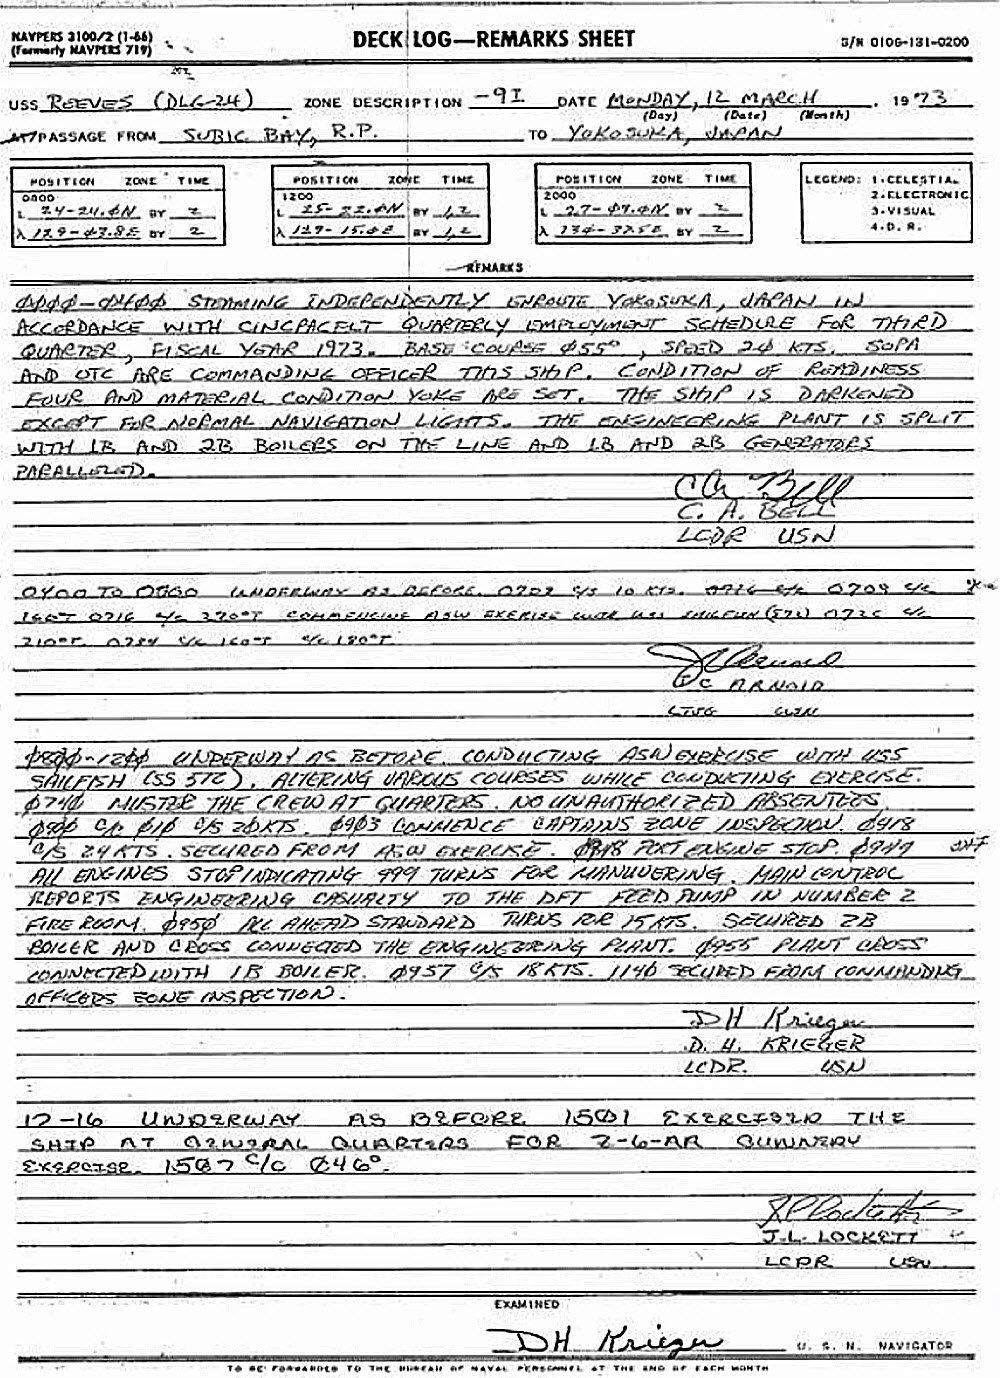 NAVPERS 3100/2 (1-66)
(Formerly NAVPERS 719)
DECK LOG—REMARKS SHEET
S/N 0106-131-0200
USS REEVES (DLG-24) ZONE DESCRIPTION -9I DATE MONDAY, 12 MARCH , 1973
(Day) (Date) (Month)
AT/PASSAGE FROM SUBIC BAY, R.P. TO YOKOSUKA, JAPAN
POSITION ZONE TIME
0800
L 24-24.0N BY 2
λ 129-03.8E BY 2
POSITION ZONE TIME
1200
L 25-22.0N BY 1,2
λ 129-15.0E BY 1,2
POSITION ZONE TIME
2000
L 27-09.0N BY 2
λ 130-32.5E BY 2
LEGEND: 1-CELESTIAL
2-ELECTRONIC
3-VISUAL
4-D. R.
REMARKS
0000-0400 STEAMING INDEPENDENTLY ENROUTE YOKOSUKA, JAPAN IN
ACCORDANCE WITH CINCPACFLT QUARTERLY EMPLOYMENT SCHEDULE FOR THIRD
QUARTER, FISCAL YEAR 1973. BASE COURSE 055°, SPEED 20 KTS. SOPA
AND OTC ARE COMMANDING OFFICER THIS SHIP. CONDITION OF READINESS
FOUR AND MATERIAL CONDITION YOKE ARE SET. THE SHIP IS DARKENED
EXCEPT FOR NORMAL NAVIGATION LIGHTS. THE ENGINEERING PLANT IS SPLIT
WITH 1B AND 2B BOILERS ON THE LINE AND 1B AND 2B GENERATORS
PARALLELED.
CA Bell
C. A. BELL
LCDR USN
0400 TO 0800 UNDERWAY AS BEFORE. 0702 C/S 10 KTS. 0709 C/C
160°T 0716 C/C 270°T COMMENCING ASW EXERISE WITH USS SAILFISH (572) 0726 C/C
210°T. 0734 C/C 160°T C/C 180°T.
ARNOLD
LTJG USN
0800-1200 UNDERWAY AS BEFORE. CONDUCTING ASW EXERCISE WITH USS
SAILFISH (SS 572). ALTERING VARIOUS COURSES WHILE CONDUCTING EXERCISE.
0740 MUSTER THE CREW AT QUARTERS. NO UNAUTHORIZED ABSENTEES.
0900 C/C 010 C/S 20 KTS. 0903 COMMENCE CAPTAINS ZONE INSPECTION. 0918
C/S 24 KTS. SECURED FROM ASW EXERCISE. 0948 PORT ENGINE STOP. 0949 DHK
ALL ENGINES STOP INDICATING 999 TURNS FOR MANUVERING. MAIN CONTROL
REPORTS ENGINEERING CASUALTY TO THE DFT FEED PUMP IN NUMBER 2
FIRE ROOM. 0950 ALL AHEAD STANDARD TURNS FOR 15 KTS. SECURED 2B
BOILER AND CROSS CONNECTED THE ENGINEERING PLANT. 0955 PLANT CROSS
CONNECTED WITH 1B BOILER. 0957 C/S 18 KTS. 1140 SECURED FROM COMMANDING
OFFICERS ZONE INSPECTION.
DH Krieger
D. H. KRIEGER
LCDR. USN
12-16 UNDERWAY AS BEFORE 1501 EXERCISED THE
SHIP AT GENERAL QUARTERS FOR Z-6-AA GUNNERY
EXERCISE. 1507 C/C 046°.
JL Lockett
J.L. LOCKETT
LCDR USN
EXAMINED
DH Krieger U. S. N. NAVIGATOR
TO BE FORWARDED TO THE BUREAU OF NAVAL PERSONNEL AT THE END OF EACH MONTH